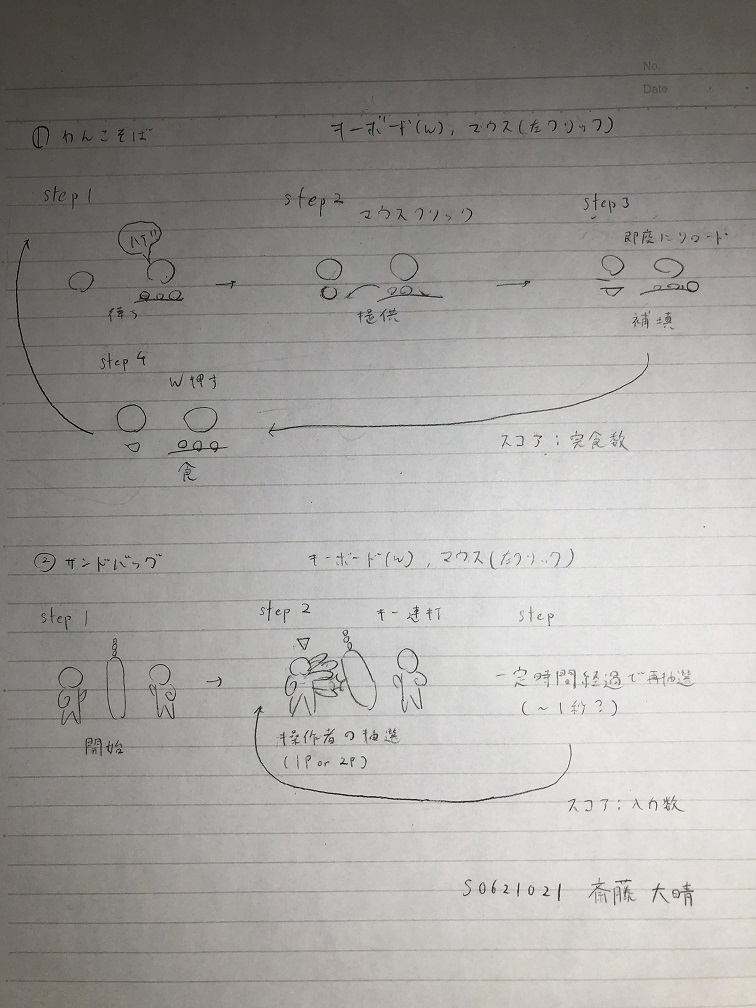 No.
Date
① わんこそば
キーボード(W), マウス(左クリック)
step 1
step 2
マウスクリック
step 3
即座にリロード
ハイ!
待つ
提供
補填
step 4
W 押す
食
スコア:完食数
② サンドバッグ
キーボード(W), マウス(左クリック)
step 1
step 2
キー連打
step
一定時間経過で再抽選
(~1秒?)
開始
操作者の抽選
(1P or 2P)
スコア:入力数
S0621021 斎藤 大晴